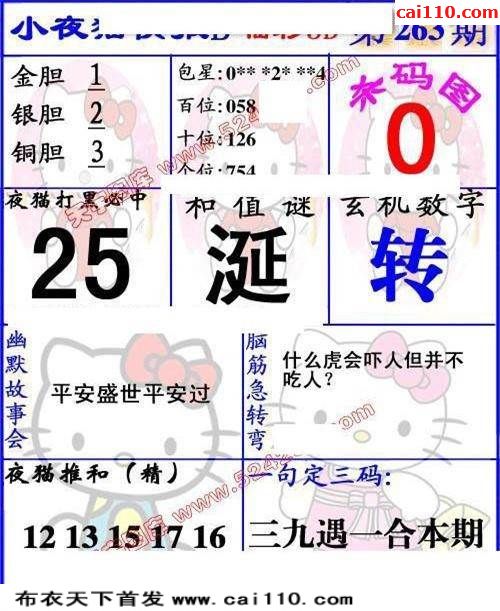 cai110.com
小夜猫
第263期
金胆 1
银胆 2
铜胆 3
包星:0** *2* **4
百位:058
十位:126
个位:754
杀码图
0
夜猫打黑必中
25
和值谜
涎
玄机数字
转
幽默故事会
平安盛世平安过
脑筋急转弯
什么虎会吓人但并不
吃人？
夜猫推和（精）
12 13 15 17 16
一句定三码:
三九遇一合本期
布衣天下首发 www.cai110.com